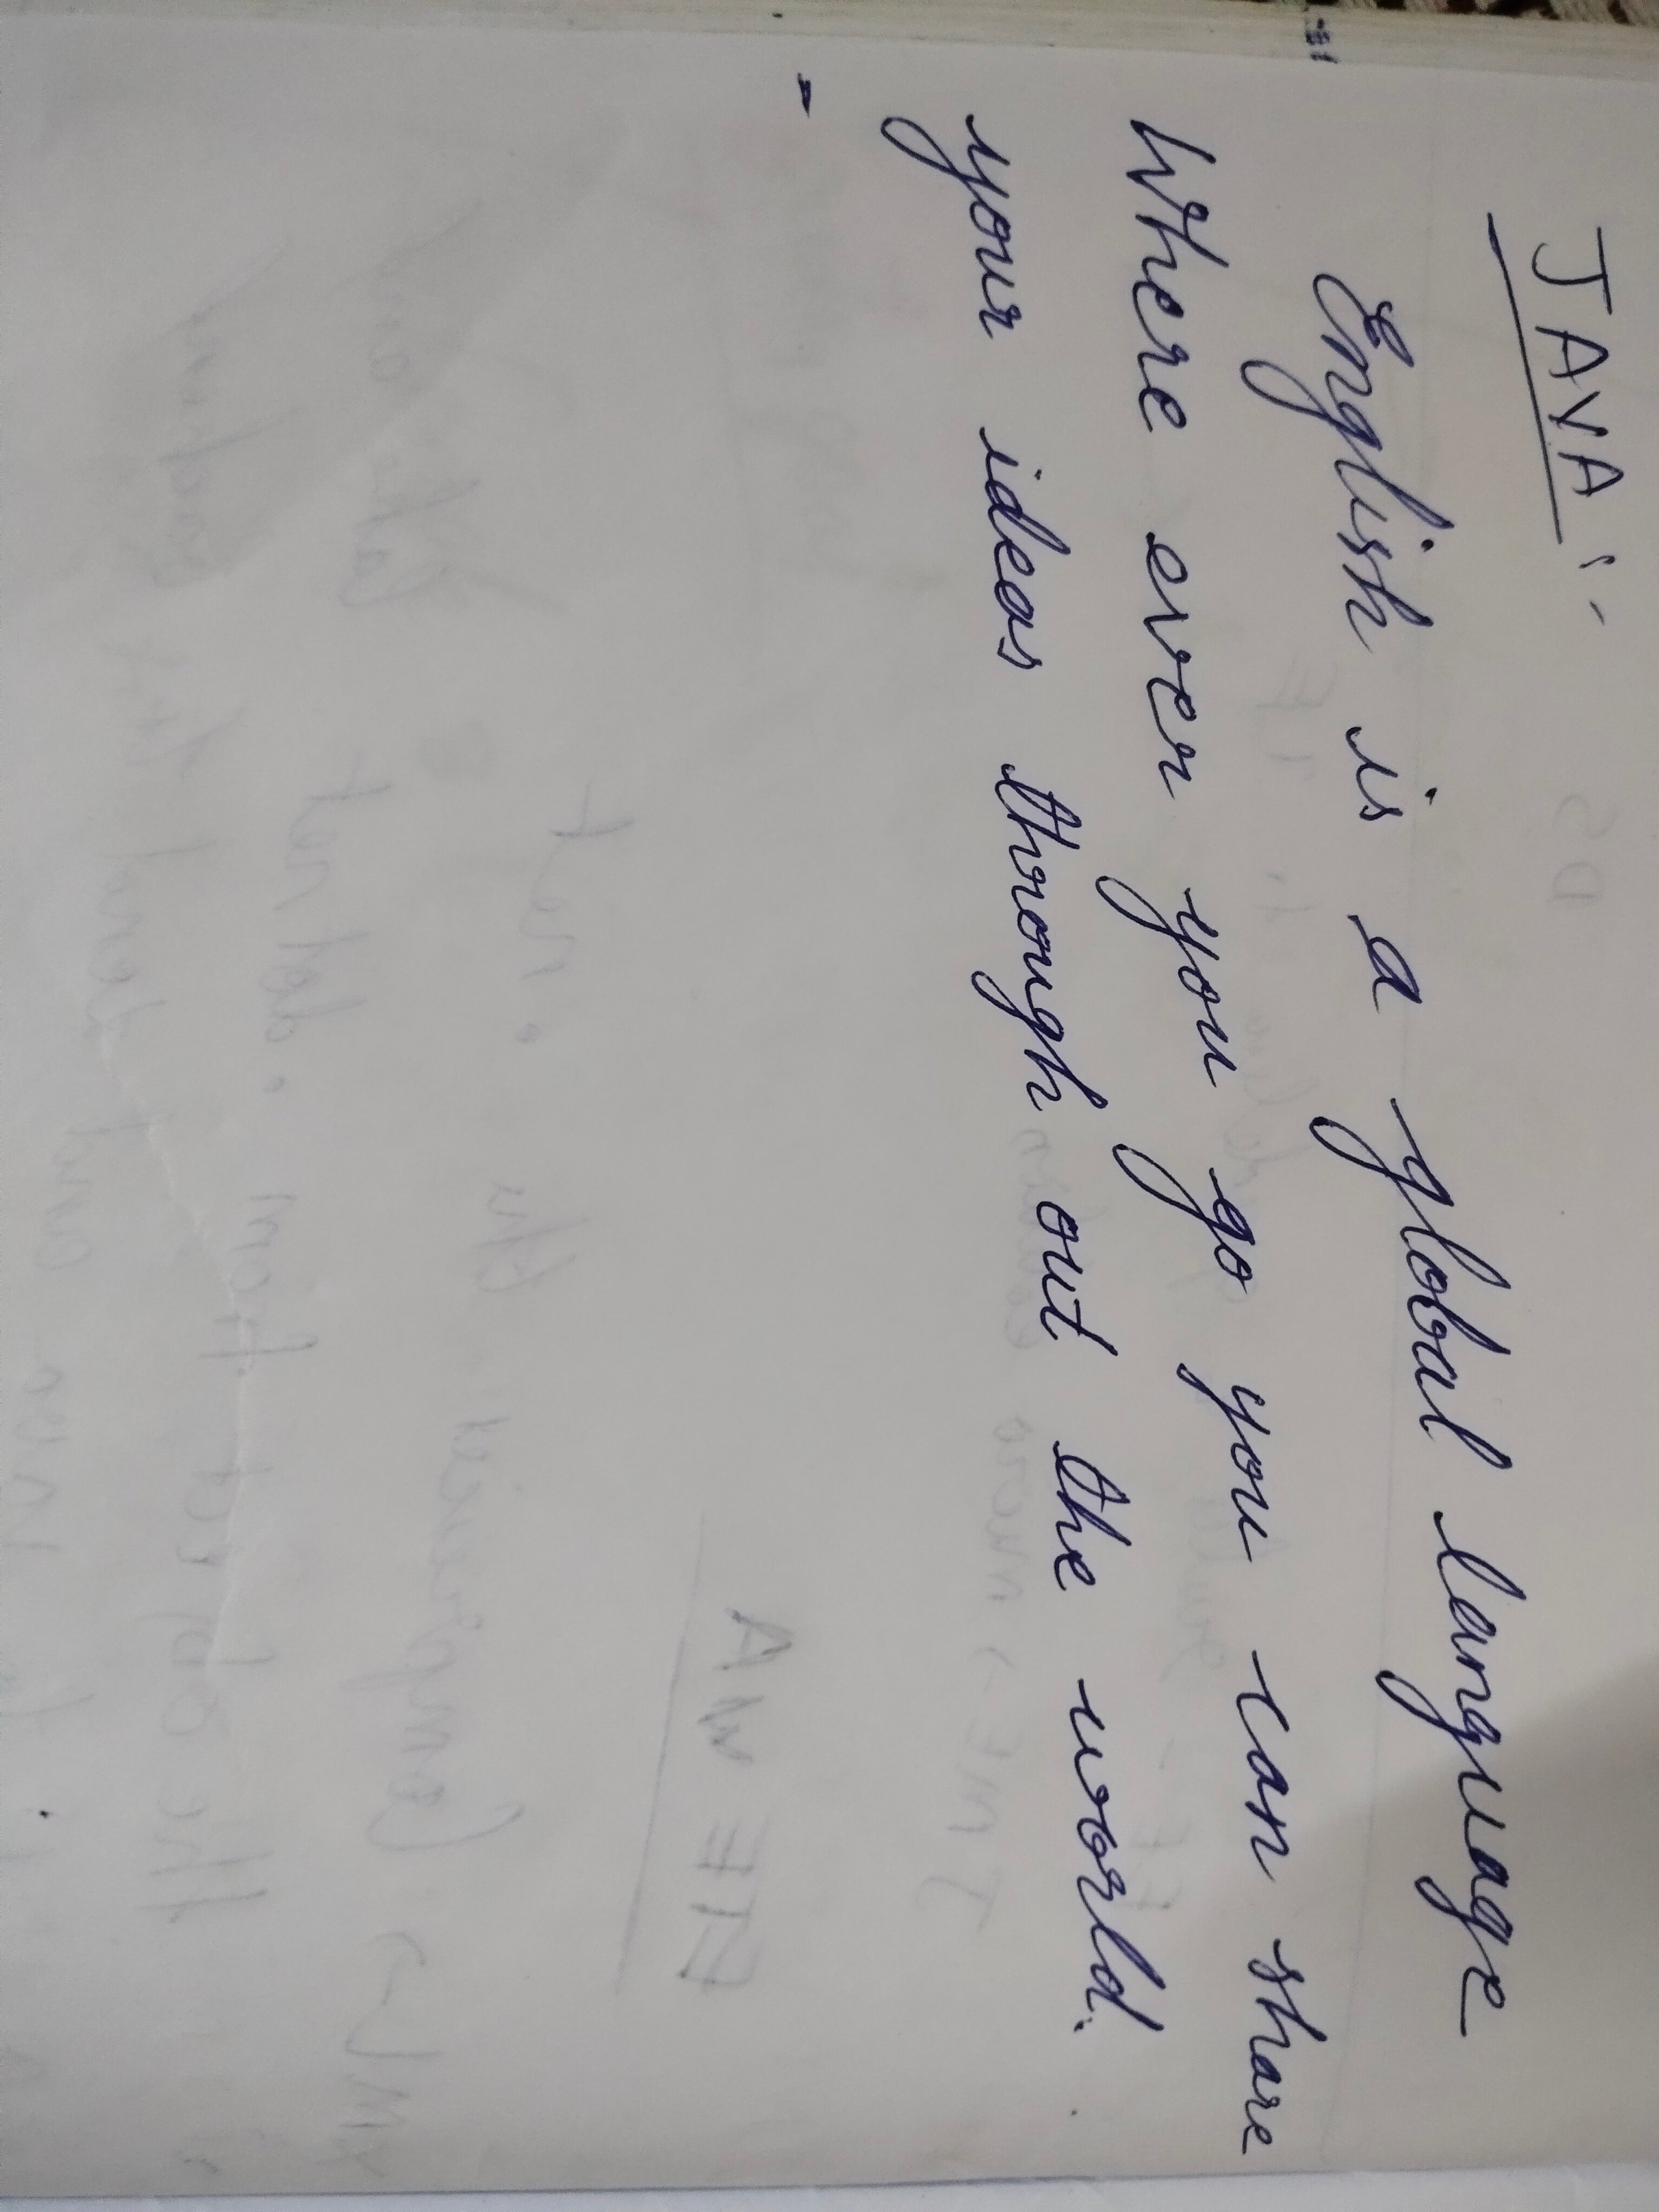 JAVA :-
English is a global language
Where ever you go you can share
your ideas through out the world.